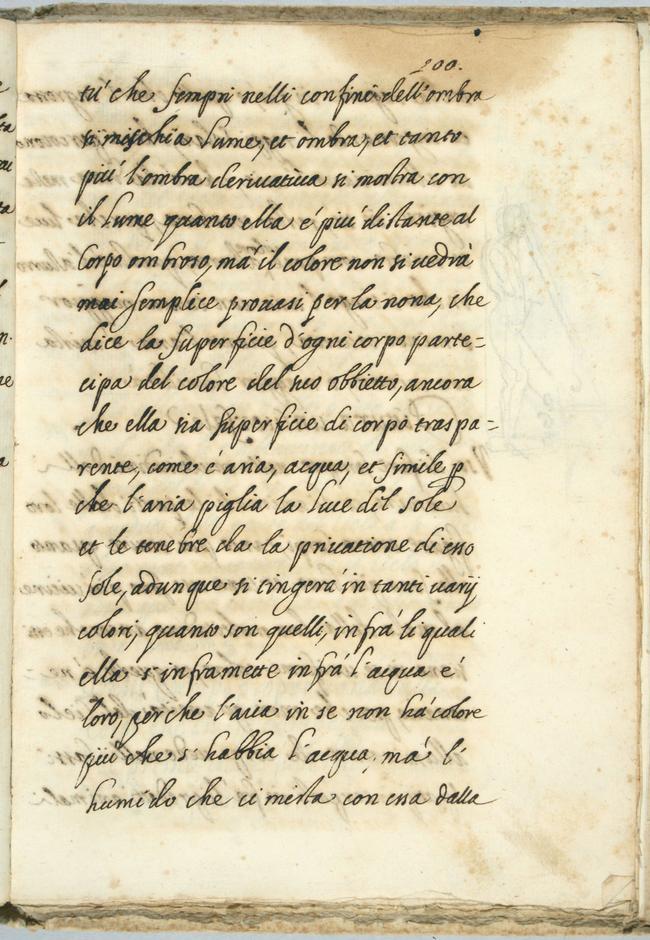 200.
tu' che sempri nelli confini dell'ombra
si mischia lume, et ombra, et tanto
più l'ombra derivativa si mostra con
il lume quanto ella é più distante al
Corpo ombroso, má il colore non si uedrà
mai semplice prouasi per la nona, che
dice la superficie d'ogni corpo parte=
cipa del colore del suo obbietto, ancora
che ella sia superficie di corpo traspa=
rente, come é aria, acqua, et simile p
che l'aria piglia la luce dil sole
et le tenebre da la priuatione di esso
sole, adunque si tingerá in tanti varij
colori, quanto son quelli, infrá li quali
ella s'inframette infrá l'acqua é
loro, perche l'aria in se non há colore
più che s'habbia l'acqua. má l'
humido che ci mista con essa dalla